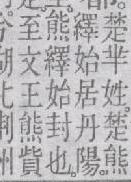 楚芈姓。楚熊
繹始居丹陽。
熊繹始封也。
至文王熊貲
湖北荊州